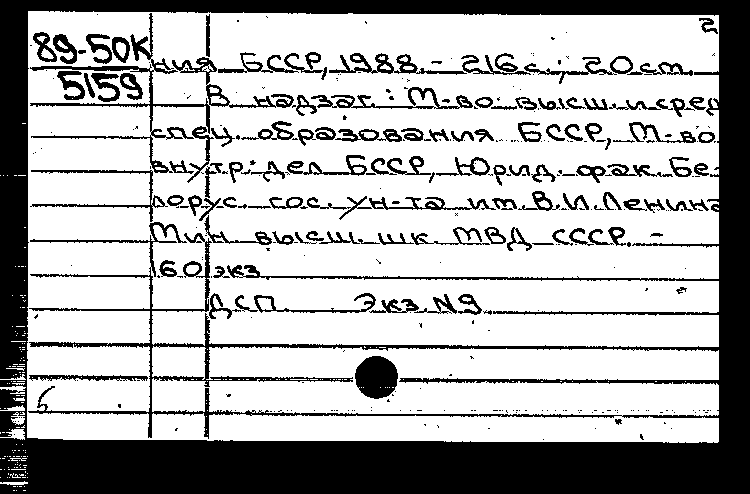 2
89-50К
5159
ния БССР, 1988. - 216 с.; 20 см.
В надзаг.: М-во высш. и сред
спец. образования БССР, М-во
внутр. дел БССР, Юрид. фак. Бе-
лорус. гос. ун-та им. В.И. Ленина
Мин. высш. шк. МВД СССР. -
160 экз.
ДСП Экз. N9
б